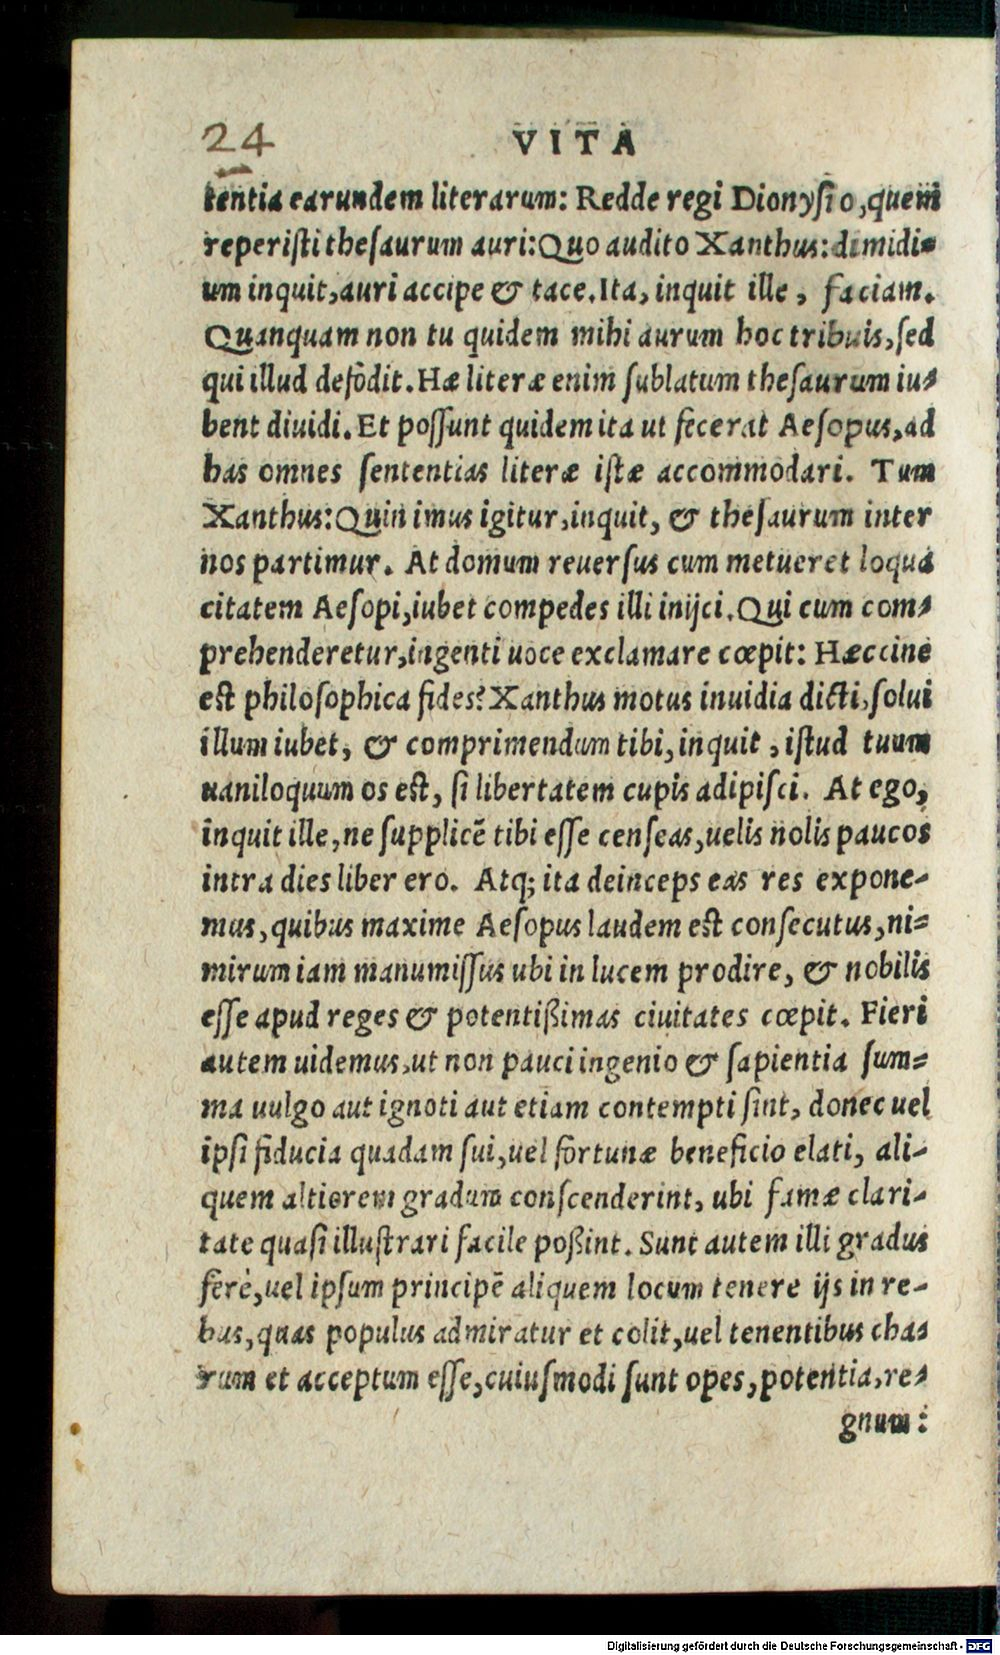 24 VITA
tentia earundem literarum: Redde regi Dionysio, quem
reperisti thesaurum auri: Quo audito Xanthus: dimidi=
um inquit, auri accipe & tace. Ita, inquit ille, faciam.
Quanquam non tu quidem mihi aurum hoc tribuis, sed
qui illud defôdit. Hæ literæ enim sublatum thesaurum iu=
bent diuidi. Et possunt quidem ita ut fecerat Aesopus, ad
has omnes sententias literæ istæ accommodari. Tum
Xanthus: Quin imus igitur, inquit, & thesaurum inter
nos partimur. At domum reuersus cum metueret loqua
citatem Aesopi, iubet compedes illi inijci. Qui cum com=
prehenderetur, ingenti uoce exclamare cœpit: Hæccine
est philosophica fides? Xanthus motus inuidia dicti, solui
illum iubet, & comprimendum tibi, inquit, istud tuum
uaniloquum os est, si libertatem cupis adipisci. At ego,
inquit ille, ne supplicē tibi esse censeas, uelis nolis paucos
intra dies liber ero. Atq; ita deinceps eas res expone-
mus, quibus maxime Aesopus laudem est consecutus, ni=
mirum iam manumissus ubi in lucem prodire, & nobilis
esse apud reges & potentißimas ciuitates cœpit. Fieri
autem uidemus, ut non pauci ingenio & sapientia sum=
ma uulgo aut ignoti aut etiam contempti sint, donec uel
ipsi fiducia quadam sui, uel fortunæ beneficio elati, ali-
quem altiorem gradum conscenderint, ubi famæ clari-
tate quasi illustrari facile poßint. Sunt autem illi gradus
ferè, uel ipsum principē aliquem locum tenere ijs in re-
bus, quas populus admiratur et colit, uel tenentibus cha=
rum et acceptum esse, cuiusmodi sunt opes, potentia, re=
gnum:
Digitalisierung gefördert durch die Deutsche Forschungsgemeinschaft - DFG